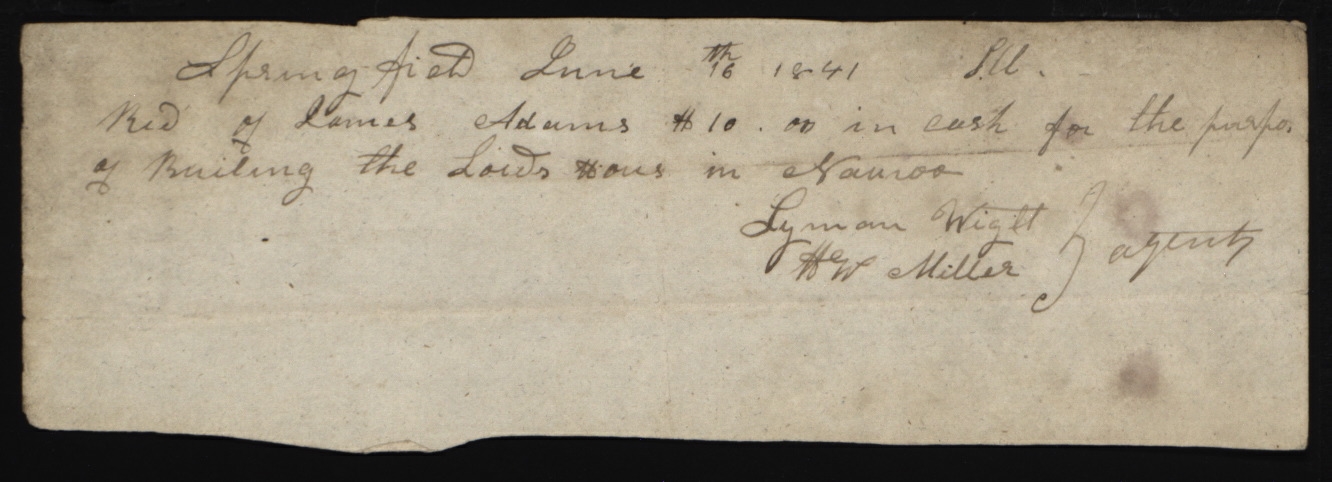 Springfield June 16th 1841 Ill.
Recd of James Adams $10.00 in cash for the purpos
of Builing the Lords Hous in Nauvoo
Lyman Wight } agents
H W Miller